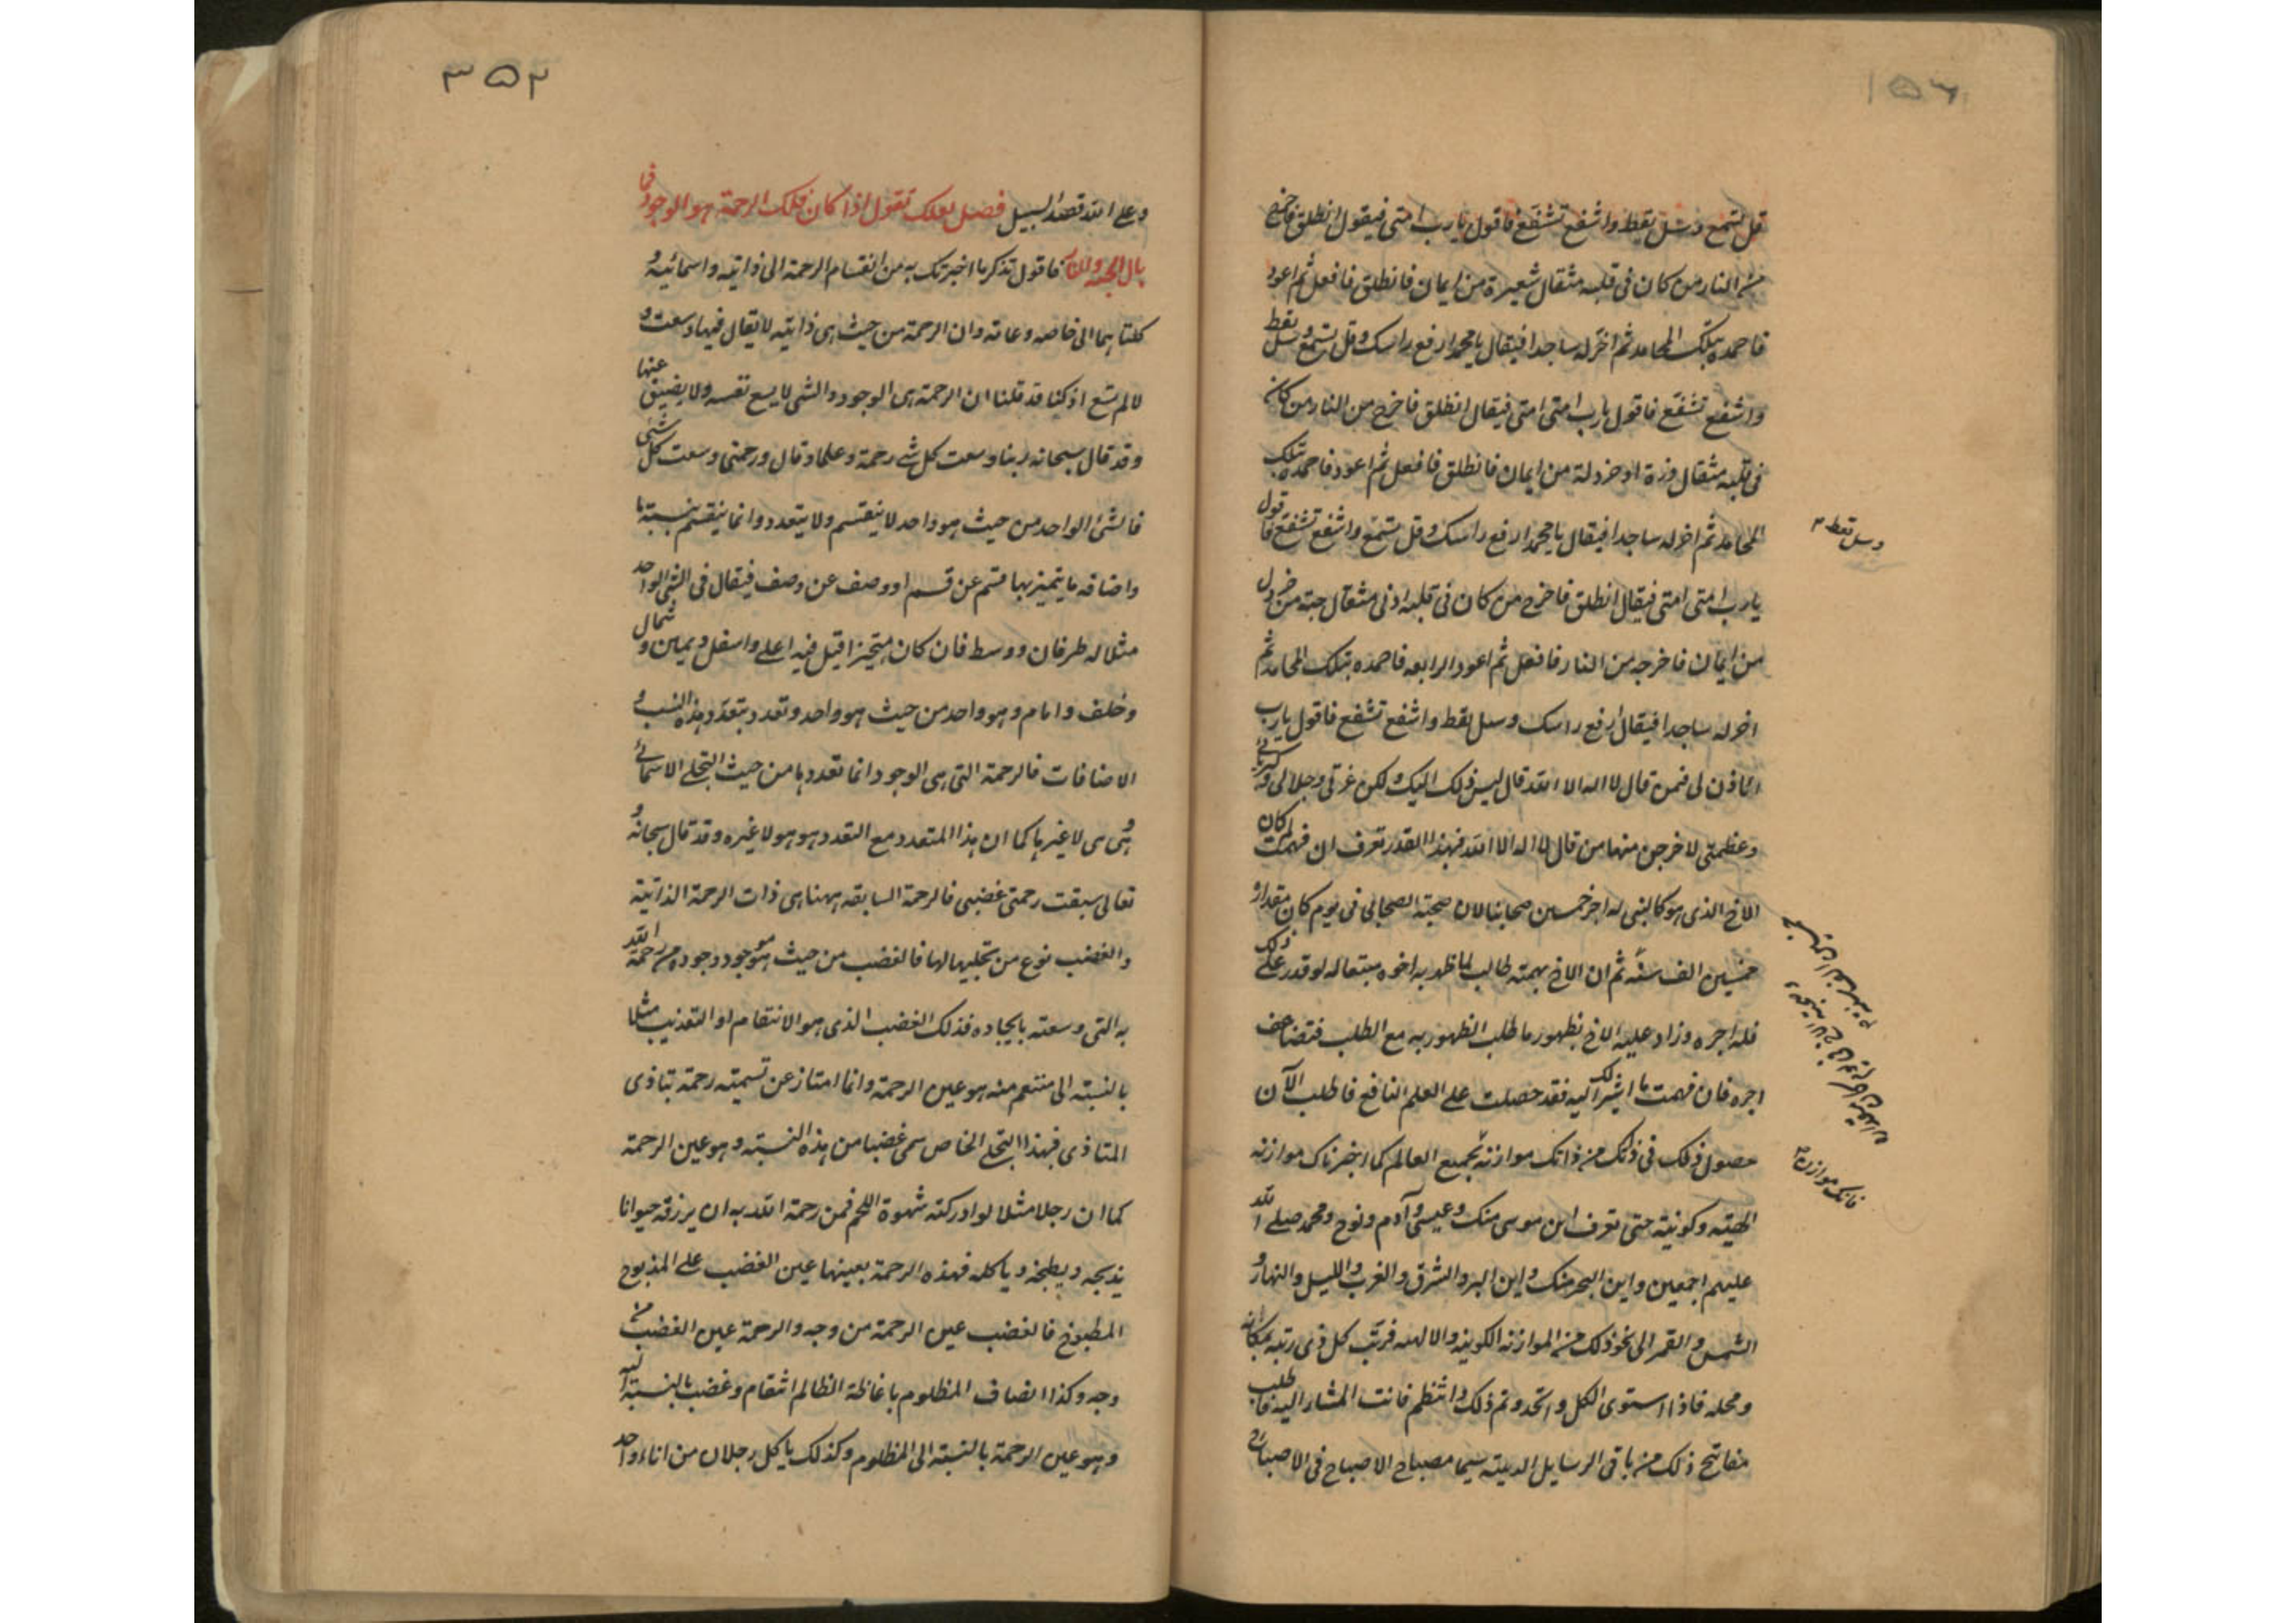 ١٥٦
قل تسمع وسل تعط واشفع تشفع فاقول يا رب امتى فيقول انطلق فاخرج
من النار من كان فى قلبه مثقال شعيرة من ايمان فانطلق فافعل ثم اعود
فاحمده بتلك المحامد ثم اخر له ساجدا فيقال يا محمد ارفع راسك وقل تسمع وسل تعط
واشفع تشفع فاقول يا رب امتى امتى فيقال انطلق فاخرج من النار من كان
فى قلبه مثقال ذرة او خردلة من ايمان فانطلق فافعل ثم اعود فاحمده بتلك
المحامد ثم اخر له ساجدا فيقال يا محمد ارفع راسك وقل تسمع واشفع تشفع فاقول
وسل تعط
يا رب امتى امتى فيقال انطلق فاخرج من كان فى قلبه ادنى مثقال حبة من خردل
من ايمان فاخرجه من النار فافعل ثم اعود الرابعه فاحمده بتلك المحامد ثم
اخر له ساجدا فيقال ارفع راسك وسل تعط واشفع تشفع فاقول يا رب
ائذن لى فيمن قال لا اله الا الله قال ليس ذلك اليك ولكن عزتى وجلالى وكبريائى
وعظمتى لاخرجن منها من قال لا اله الا الله فبهذا القدر تعرف ان فهمت لم كان
الاخ الذى هو كالنبى له اجر خمسين صحابيا لان صحبة الصحابى فى يوم كان مقداره
خمسين الف سنة ثم ان الاخ بهمته طالب لما ظهر به اخوه متعاله لو قدر على ذلك
فله اجره وزاد عليه الاخ بظهور ما طلب الظهور به مع الطلب فتضاعف
اجره فان فهمت ما اشير لك اليه فقد حصلت على العلم النافع فاطلب الآن
حصول ذلك فى ذاتك من ذاتك موازنة بجميع العالم كما اخبرناك موازنه
فانك موازن
الهية وكونية حتى تعرف اين موسى منك وعيسى وآدم ونوح ومحمد صلى الله
عليهم اجمعين واين البحر منك واين البر والشرق والغرب والليل والنهار و
الشمس والقمر الى نحو ذلك من الموازنة الكونيه والالهيه فرتب كل ذى رتبه بمكانه
ومحله فاذا استوى الكل واتحد وتم ذلك وانتظم فانت المشار اليه فاطلب
مفاتيح ذلك من باقى الرسايل الدينيه سيما مصباح الاصباح فى الاصباح
٣٥٢
وعلى الله قصد السبيل فصل لعلك تقول اذا كان فلك الرحمة هو الوجود فما
بال الجنه والنار فاقول تذكر ما اخبرتك به من انقسام الرحمة الى ذاتيه واسمائيه و
كلتاهما الى خاصه وعامه وان الرحمة من حيث هى ذاتيه لا يقال فيها وسعت و
لا لم تسع اذ كنا قد قلنا ان الرحمة هى الوجود والشى لا يسع نفسه ولا يضيق عنها
وقد قال سبحانه ربنا وسعت كل شى رحمة وعلما وقال ورحمتى وسعت كل شى
فالشئ الواحد من حيث هو واحد لا ينقسم ولا يتعدد وانما ينقسم بنسبة ما
واضافه ما يتميز بها قسم عن قسم او وصف عن وصف فيقال فى الشى الواحد
مثلا له طرفان ووسط فان كان متحيزا قيل فيه اعلى واسفل ويمين وشمال
وخلف وامام وهو واحد من حيث هو واحد وتعدد بتعدد هذه النسب و
الاضافات فالرحمة التى هى الوجود انما تعددها من حيث التجلى الاسمائى
وهى هى لا غيرها كما ان هذا المتعدد مع التعدد هو هو لا غيره وقد قال سبحانه و
تعالى سبقت رحمتى غضبى فالرحمة السابقه ههنا هى ذات الرحمة الذاتية
والغضب نوع من تجليها لها فالغضب من حيث هو موجود وجوده من رحمة الله
به التى وسعته بايجاده فذلك الغضب الذى هو الانتقام او التعذيب مثلا
بالنسبة الى منتقم منه هو عين الرحمة وانما امتاز عن تسميته رحمة بتاذى
المتاذى فبهذا التجلى الخاص سمى غضبا من هذه النسبة وهو عين الرحمة
كما ان رجلا مثلا لو ادركته شهوة اللحم فمن رحمة الله به ان يرزقه حيوانا
يذبحه ويطبخه وياكله فهذه الرحمة بعينها عين الغضب على المذبوح
المطبوخ فالغضب عين الرحمة من وجه والرحمة عين الغضب من
وجه وكذا انصاف المظلوم باغاظة الظالم انتقام وغضب بالنسبة اليه
وهو عين الرحمة بالنسبة الى المظلوم وكذلك ياكل رجلان من اناء واحد